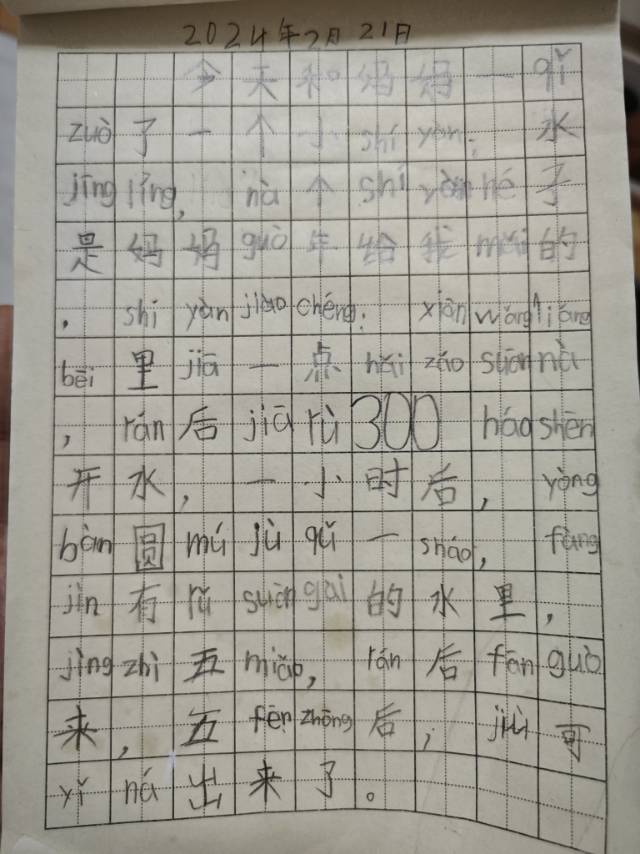 2024年2月21日
今天和妈妈一qǐ
zuò了一个小shí yàn:水
jīng líng,nà个shí yàn hé子
是妈妈guò年给我mǎi的
,shí yàn jiào chéng:xiān wǎng liáng
bēi里jiā一点hǎi zǎo suān nà
,rán后jiā rù300háo shēn
开水,一小时后,yòng
bàn圆mú jù qǔ一sháo,fàng
jìn有rǔ suān gài的水里,
jìng zhì五miǎo,rán后fān guò
来,五fēn zhōng后,jiù可
yǐ ná出来了。